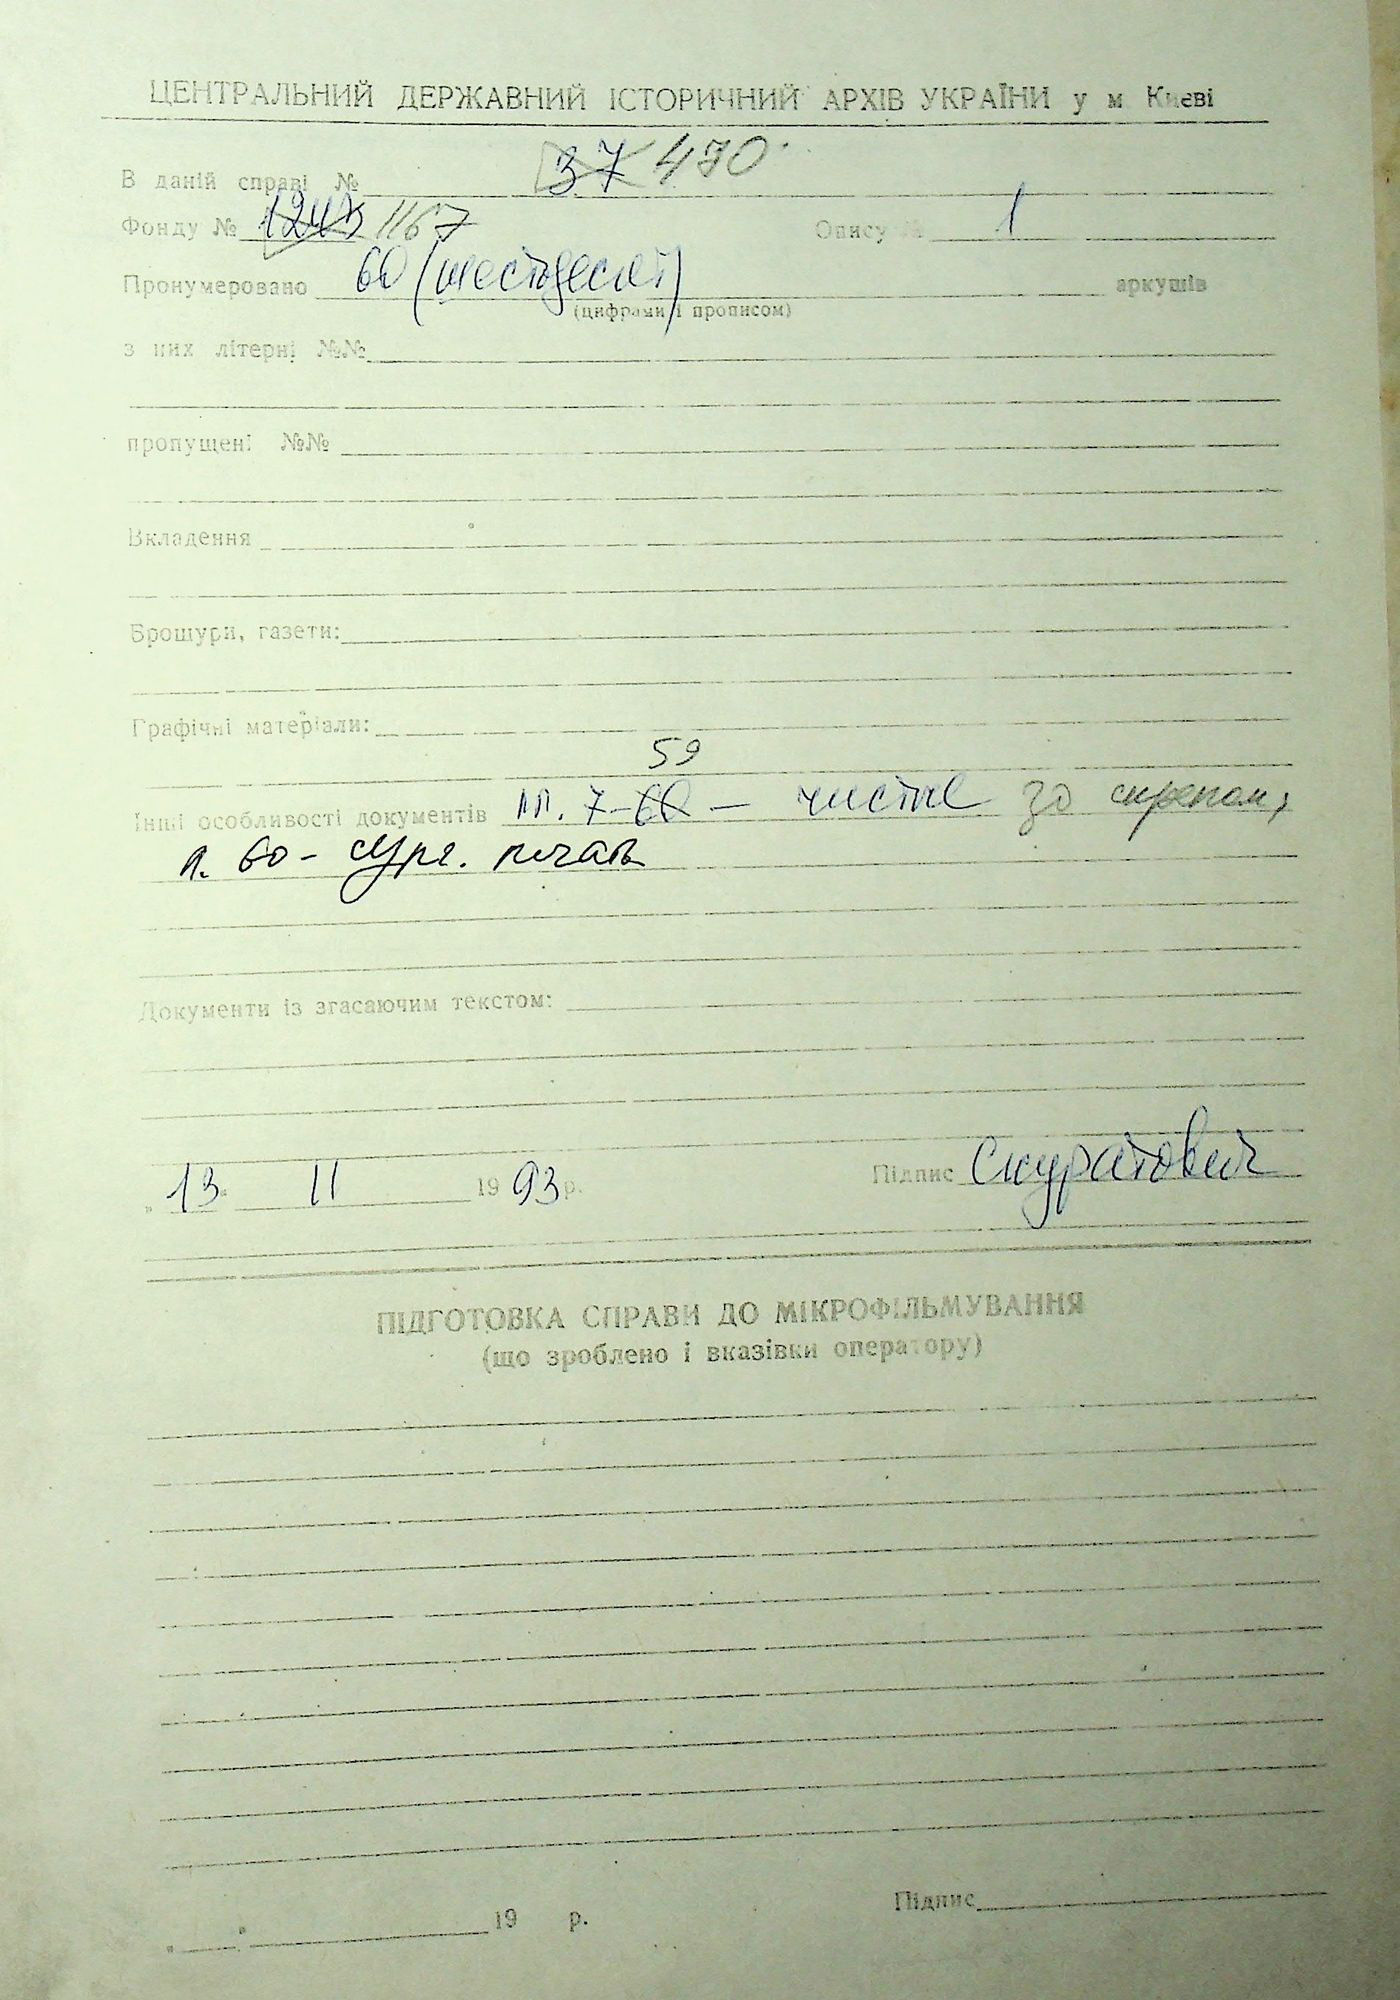 ЦЕНТРАЛЬНИЙ ДЕРЖАВНИЙ ІСТОРИЧНИЙ АРХІВ УКРАЇНИ у м Києві
В даній справі № 37 470
Фонду № 1167 Опису № 1
Пронумеровано 60 (шестьдесят) аркушів
(цифрами і прописом)
з них літерні №№
пропущені №№
Вкладення
Брошури, газети:
Графічні матеріали:
59
Інші особливості документів лл. 7-60 — чистые за скрепом,
л. 60 - сург. печать
Документи із згасаючим текстом:
„13“ 11 1993 р. Підпис Скуратович
ПІДГОТОВКА СПРАВИ ДО МІКРОФІЛЬМУВАННЯ
(що зроблено і вказівки оператору)
„ “ 19 р. Підпис